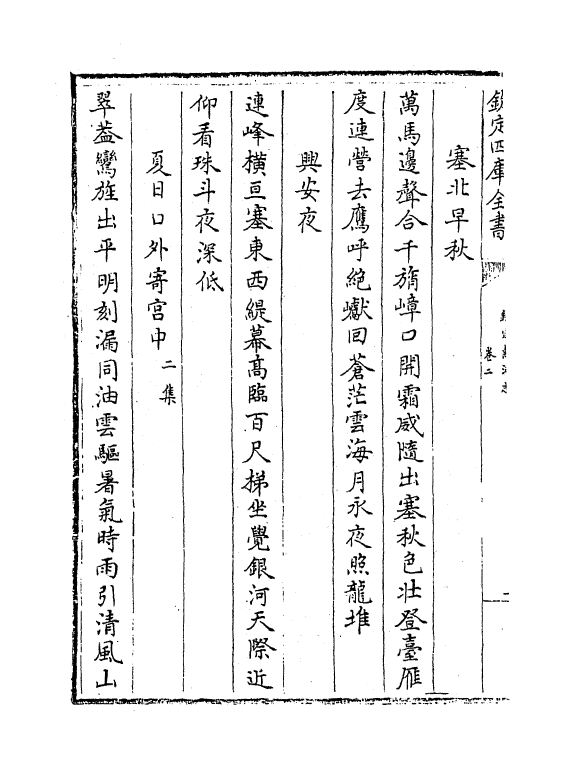 欽定四庫全書
卷二
塞北早秋
萬馬邊聲合千旓嶂口開霜威隨出塞秋色壯登臺雁
度連營去鷹呼絶巘回蒼茫雲海月永夜照龍堆
興安夜
連峰橫亘塞東西緹幕髙臨百尺梯坐覺銀河天際近
仰看珠斗夜深低
夏日口外寄宫中二集
翠葢鸞旌出平明刻漏同油雲驅暑氣時雨引清風山